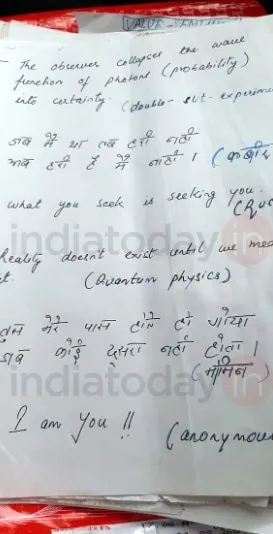 VALUE
- The observer collapses the wave
function of photons (probability)
into certainty. (double-slit-experime
जब मैं था तब हरी नहीं
अब हरी है मैं नाहीं । (कबीर
what you seek is seeking you.
indiatoday.in
Reality doesn't exist until we mea
it. (Quantum physics)
तुम मेरे पास होते हो गोया
जब कोई दूसरा नहीं होता ।
indiatoday.in
(मोमिन)
I am You !!
(anonymous